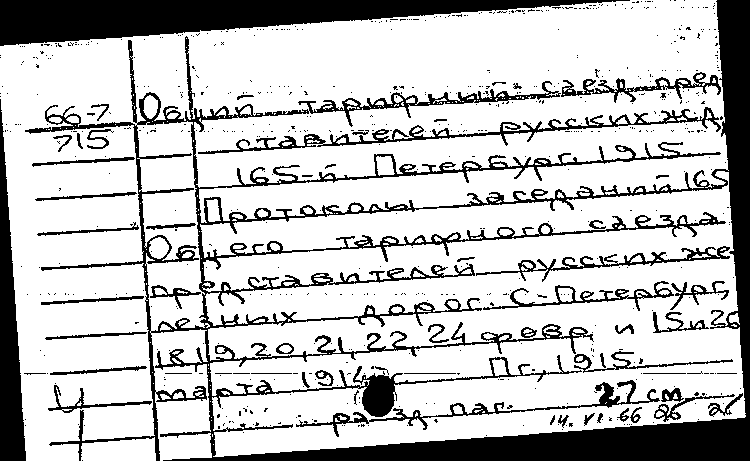 66-7
715
Общий тарифный съезд пред
ставителей русских ж.д,
165-й. Петербург. 1915.
Протоколы заседаний 165
Общего тарифного съезда
представителей русских же-
лезных дорог. С-Петербург,
18,19,20,21,22,24 февр. и 15 и 26
марта 1914 г. Пг., 1915.
разд. паг. 27 см
14. VI. 66